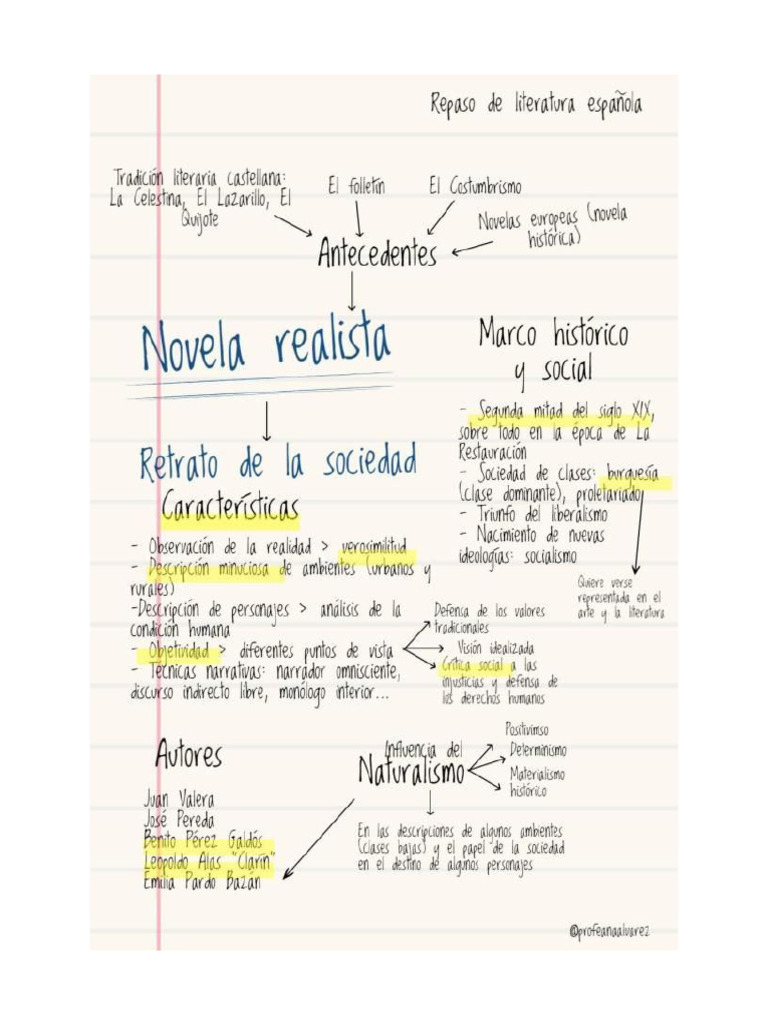 Repaso de literatura española
Tradición literaria castellana:
La Celestina, El Lazarillo, El
Quijote
El folletín
El Costumbrismo
Novelas europeas (novela
histórica)
Antecedentes
Novela realista
Retrato de la sociedad
Características
- Observación de la realidad > verosimilitud
- Descripción minuciosa de ambientes (urbanos y
rurales)
-Descripción de personajes > análisis de la
condición humana
- Objetividad > diferentes puntos de vista
- Técnicas narrativas: narrador omnisciente,
discurso indirecto libre, monólogo interior...
Defensa de los valores
tradicionales
Visión idealizada
Crítica social a las
injusticias y defensa de
los derechos humanos
Marco histórico
y social
- Segunda mitad del siglo XIX,
sobre todo en la época de La
Restauración
- Sociedad de clases: burguesía
(clase dominante), proletariado
- Triunfo del liberalismo
- Nacimiento de nuevas
ideologías: socialismo
Quiere verse
representada en el
arte y la literatura
Autores
Juan Valera
José Pereda
Benito Pérez Galdós
Leopoldo Alas "Clarín"
Emilia Pardo Bazán
Influencia del
Naturalismo
Positivimso
Determinismo
Materialismo
histórico
En las descripciones de algunos ambientes
(clases bajas) y el papel de la sociedad
en el destino de algunos personajes
@profeanaalvarez